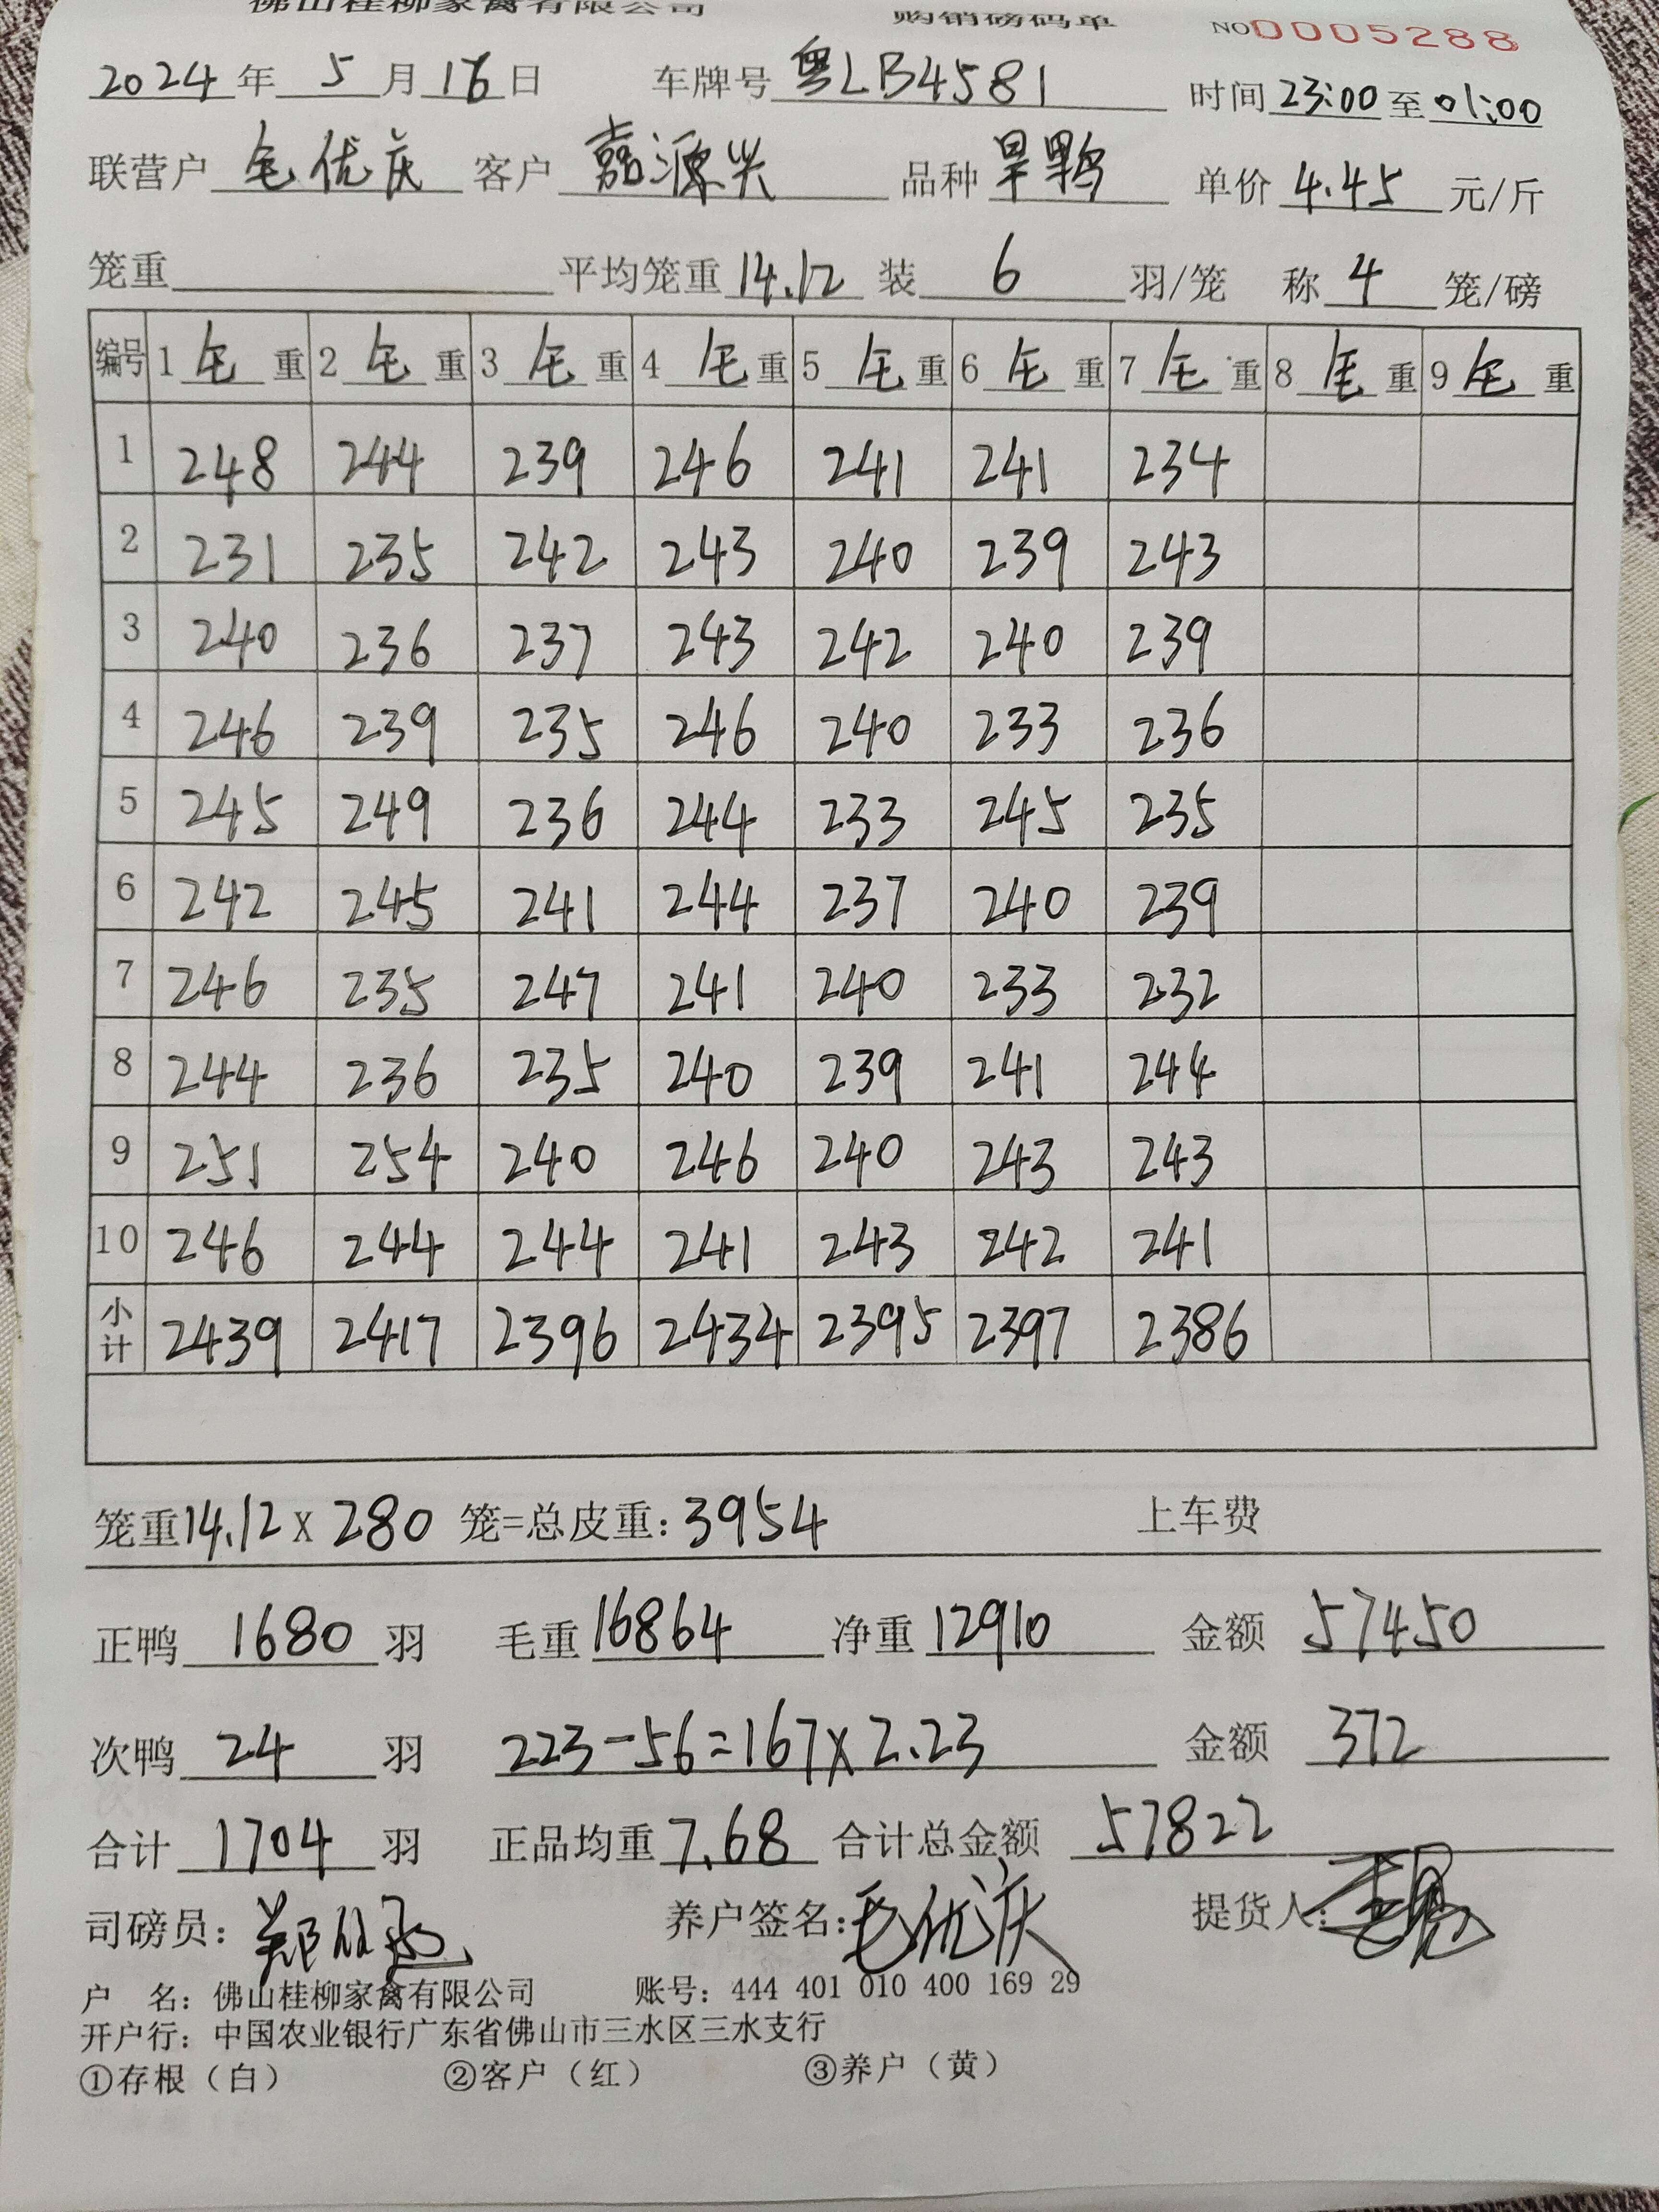 佛山桂柳家禽有限公司 购销磅码单 NO 0005288
2024年 5月 16日 车牌号 粤LB4581 时间 23:00 至 01:00
联营户 毛优庆 客户 嘉源兴 品种 旱鸭 单价 4.45 元/斤
笼重 平均笼重 14.12 装 6 羽/笼 称 4 笼/磅
编号 1 毛 重 2 毛 重 3 毛 重 4 毛 重 5 毛 重 6 毛 重 7 毛 重 8 毛 重 9 毛 重
1 248 244 239 246 241 241 234
2 231 235 242 243 240 239 243
3 240 236 237 243 242 240 239
4 246 239 235 246 240 233 236
5 245 249 236 244 233 245 235
6 242 245 241 244 237 240 239
7 246 235 247 241 240 233 232
8 244 236 235 240 239 241 244
9 251 254 240 246 240 243 243
10 246 244 244 241 243 242 241
小计 2439 2417 2396 2434 2395 2397 2386
笼重 14.12 x 280 笼=总皮重: 3954 上车费
正鸭 1680 羽 毛重 16864 净重 12910 金额 57450
次鸭 24 羽 223-56=167x2.23 金额 372
合计 1704 羽 正品均重 7.68 合计总金额 57822
司磅员: 养户签名: 毛优庆 提货人:
户 名: 佛山桂柳家禽有限公司 账号: 444 401 010 400 169 29
开户行: 中国农业银行广东省佛山市三水区三水支行
①存根（白） ②客户（红） ③养户（黄）